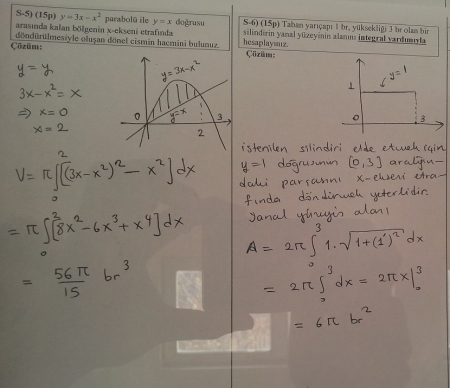 S-5) (15p) y=3x-x² parabolü ile y=x doğrusu
arasında kalan bölgenin x-ekseni etrafında
döndürülmesiyle oluşan dönel cismin hacmini bulunuz.
Çözüm:
y = y
3x-x² = x
⇒ x=0
x=2
y=3x-x²
y=x
0
2
3
V = π∫₀²[(3x-x²)² - x²]dx
= π∫₀²[8x²-6x³+x⁴]dx
= 56π/15 br³
S-6) (15p) Taban yarıçapı 1 br, yüksekliği 3 br olan bir
silindirin yanal yüzeyinin alanını integral yardımıyla
hesaplayınız.
Çözüm:
y=1
1
0
3
istenilen silindiri elde etmek için
y=1 doğrusunun [0,3] aralığın-
daki parçasını x-ekseni etra-
fında döndürmek yeterlidir.
Yanal yüzeyin alanı
A = 2π∫₀³ 1.√(1+(1')²) dx
= 2π∫₀³ dx = 2πx|₀³
= 6π br²